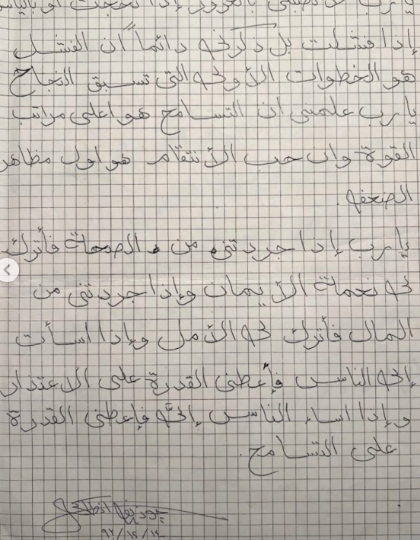 يارب لا تصيبني بالغرور إذا نجحت أو باليأس
إذا فشلت بل ذكرني دائماً أن الفشل
هو الخطوات الأولى التي تسبق النجاح
يارب علمني ان التسامح هو اعلى مراتب
القوة وان حب الأنتقام هو اول مظاهر
الضعف.
يارب إذا جردتني من الصحة فأترك
لي نعمة الأيمان وإذا جردتني من
المال فأترك لي الأمل وإذا اسأت
إلى الناس فإعطني القدرة على الاعتذار
وإذا اساء الناس إلي فإعطني القدرة
على التسامح.